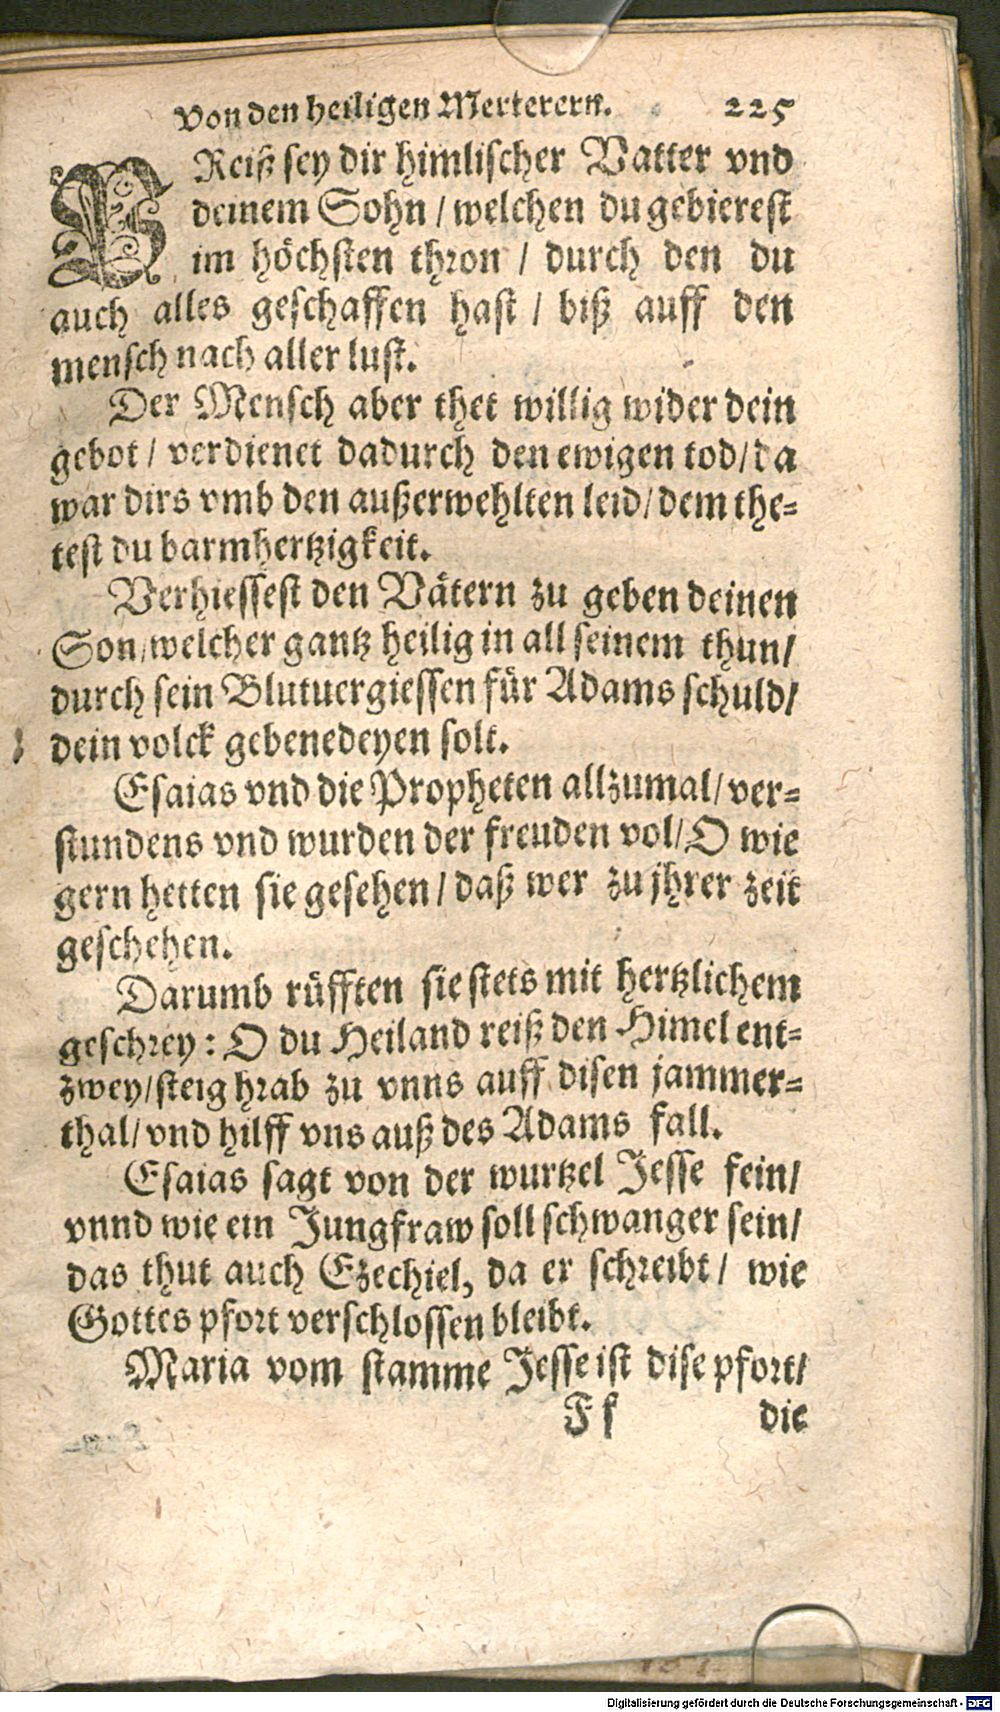 Von den heiligen Merterern. 225
PReiß sey dir himlischer Vatter vnd
deinem Sohn / welchen du gebierest
im höchsten thron / durch den du
auch alles geschaffen hast / biß auff den
mensch nach aller lust.
Der Mensch aber thet willig wider dein
gebot / verdienet dadurch den ewigen tod / da
war dirs vmb den außerwehlten leid / dem the-
test du barmhertzigkeit.
Verhiessest den Vätern zu geben deinen
Son, welcher gantz heilig in all seinem thun /
durch sein Blutuergiessen für Adams schuld /
dein volck gebenedeyen solt.
Esaias vnd die Propheten allzumal / ver-
stundens vnd wurden der freuden vol / O wie
gern hetten sie gesehen / daß wer zu jhrer zeit
geschehen.
Darumb rüfften sie stets mit hertzlichem
geschrey : O du Heiland reiß den Himel ent-
zwey / steig hrab zu vnns auff disen jammer-
thal / vnd hilff vns auß des Adams fall.
Esaias sagt von der wurtzel Jesse fein /
vnnd wie ein Jungfraw soll schwanger sein /
das thut auch Ezechiel, da er schreibt / wie
Gottes pfort verschlossen bleibt.
Maria vom stamme Jesse ist dise pfort /
Ff die
Digitalisierung gefördert durch die Deutsche Forschungsgemeinschaft - DFG